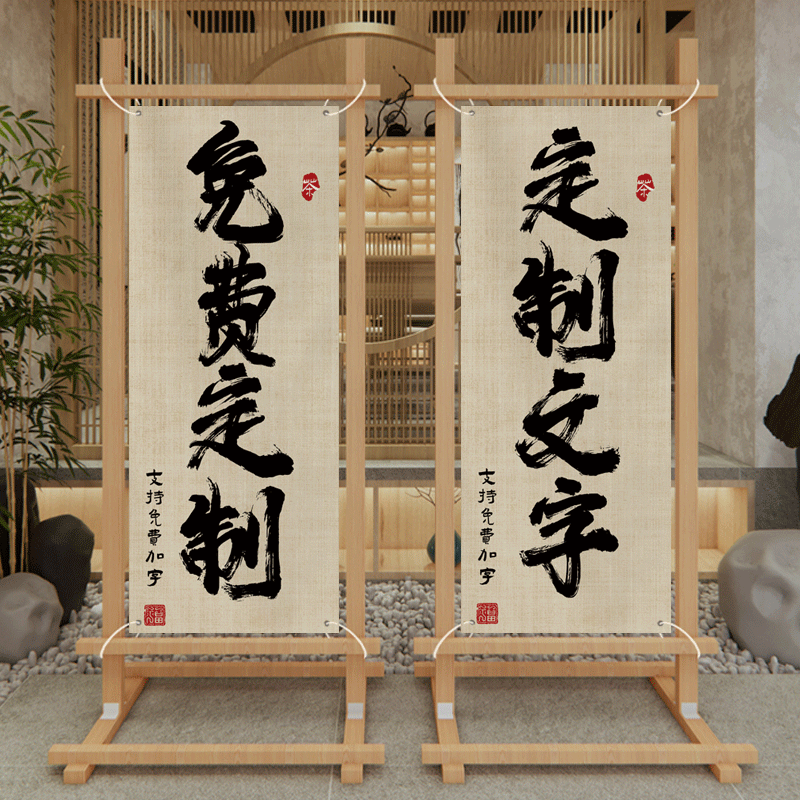 免费定制
茶
支持免費加字
定制文字
茶
支持免費加字